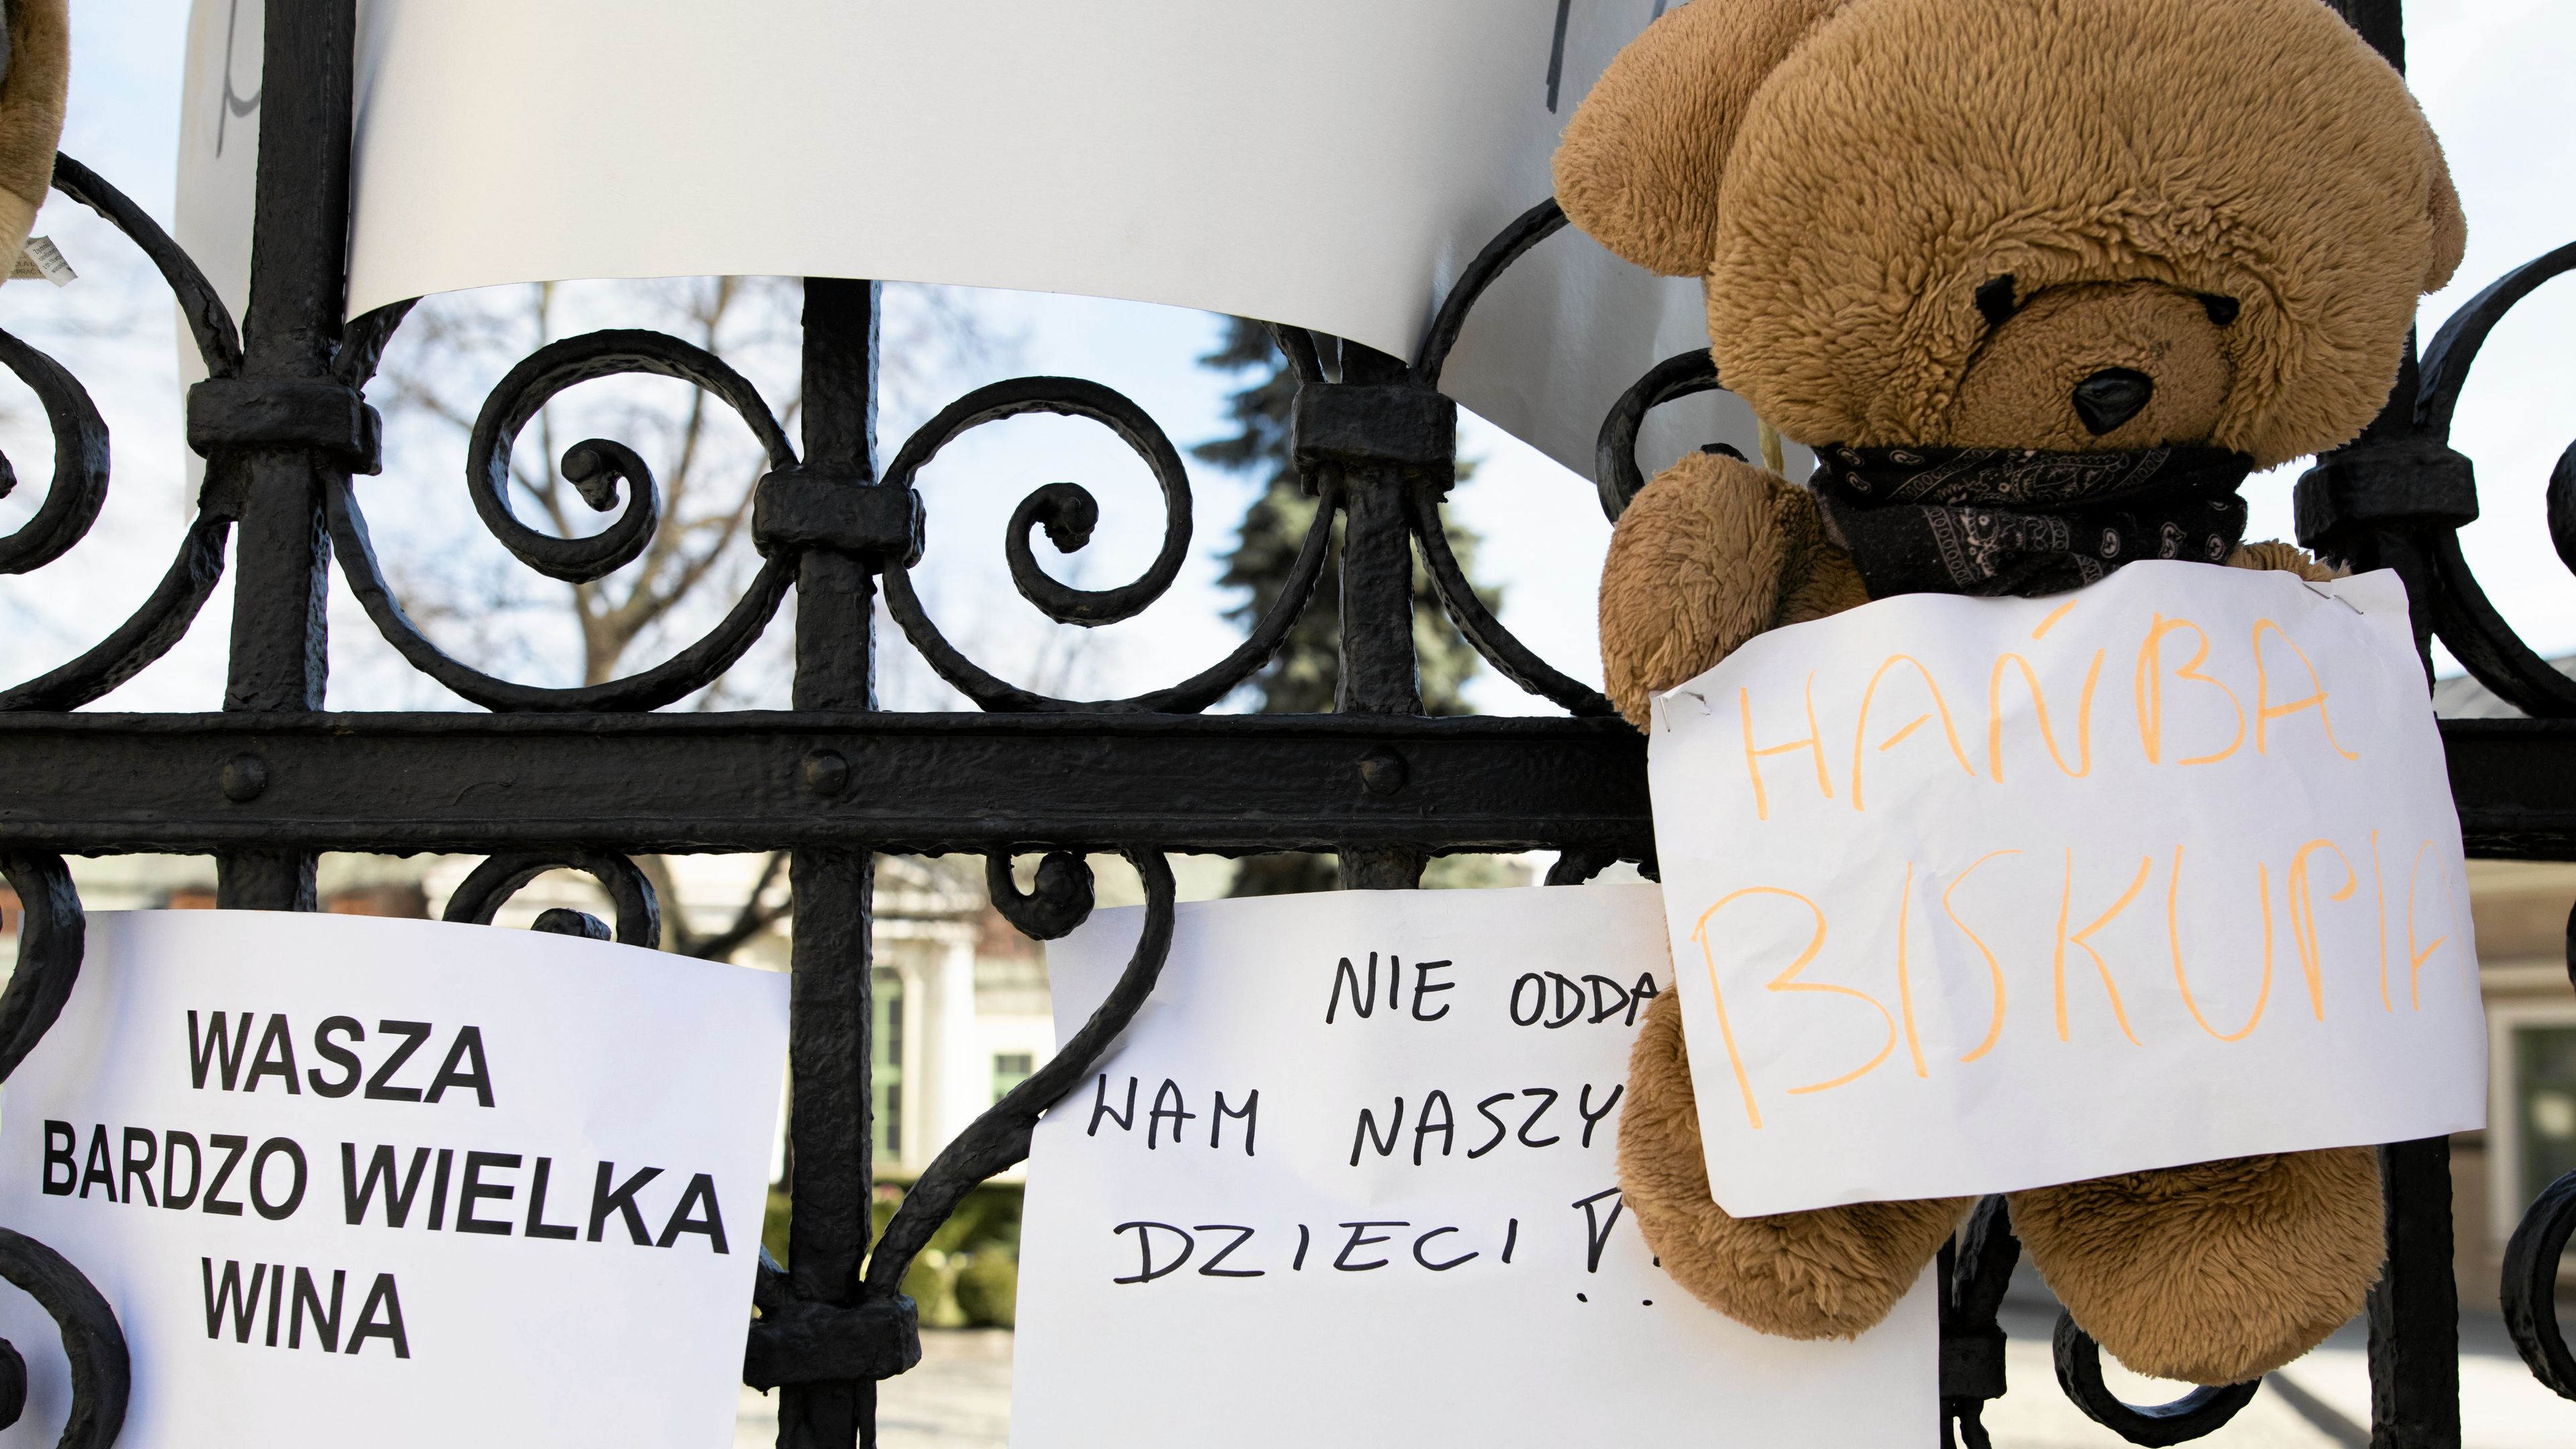 WASZA
BARDZO WIELKA
WINA
NIE ODDA
WAM NASZY
DZIECI !!
HAŃBA
BISKUPIA